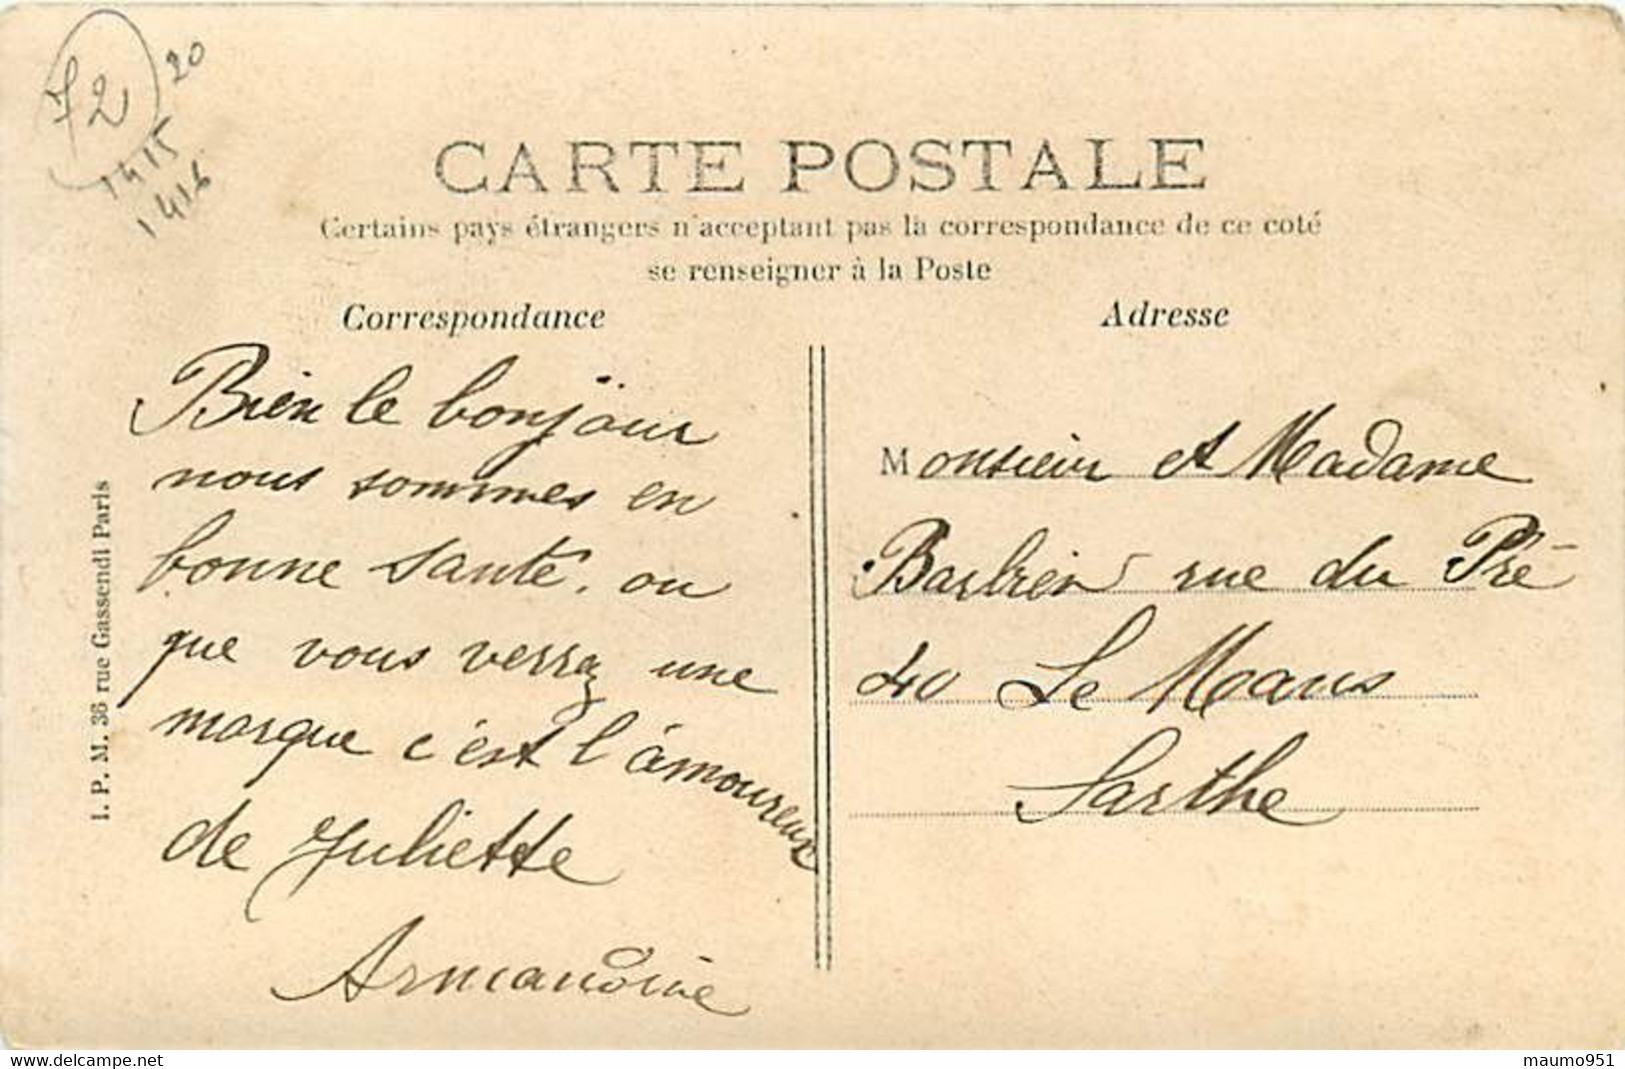 72
20
1415
1416
CARTE POSTALE
Certains pays étrangers n'acceptant pas la correspondance de ce coté
se renseigner à la Poste
Correspondance
Bien le bonjour
nous sommes en
bonne santé. ou
que vous verrez une
marque c'est l'amoureux
de Juliette
Armandine
I. P. M. 36 rue Gassendi Paris
Adresse
Monsieur et Madame
Barbier rue du Pré
40 Le Mans
Sarthe
https://www.delcampe.net
maumo951